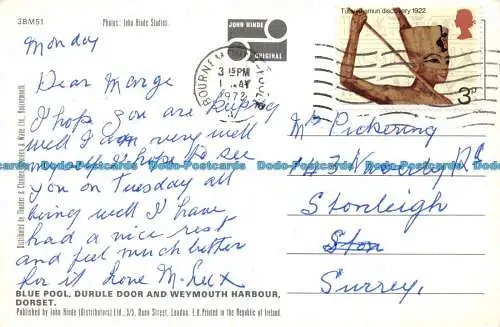 3BM51
Photo: John Hinde Studios.
JOHN HINDE
ORIGINAL
Tutankhamun discovery 1922
3p
BOURNEMOUTH
3 15 PM
1 MAY
1972
Monday
Dear Marge
I hope you are keeping
well I am very well
I hope to see
you on Tuesday all
being well I have
had a nice rest
and feel much better
for it love M. x
Mrs Pickering
143 Rd
Stonleigh
Ston
Surrey.
Do-Postcards Dodo-Postcards Dodo-Postcards Dodo-Postcards Dodo-Postcards
BLUE POOL, DURDLE DOOR AND WEYMOUTH HARBOUR,
DORSET.
Published by John Hinde (Distributors) Ltd., 3/5, Dunn Street, London. E.8. Printed in the Republic of Ireland.